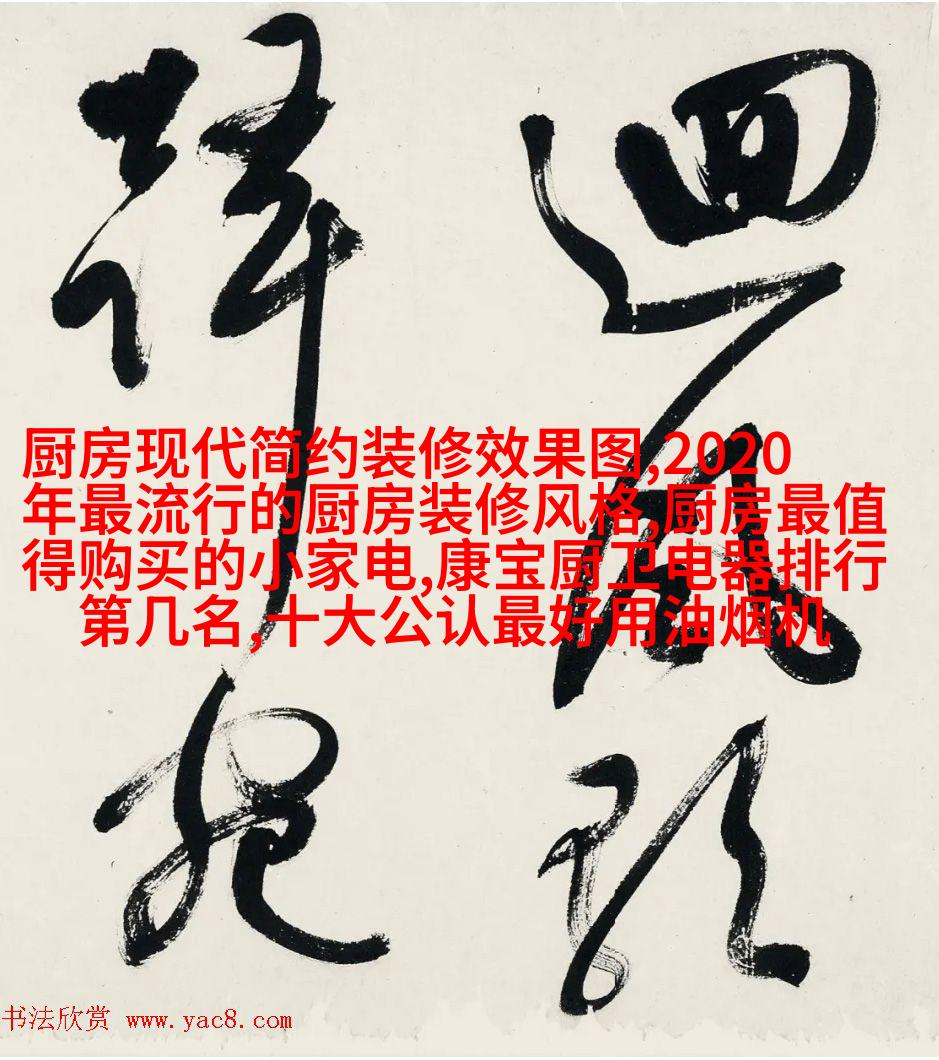 迴風
厨房现代简约装修效果图,2020
年最流行的厨房装修风格,厨房最值
得购买的小家电,康宝厨卫电器排行
第几名,十大公认最好用油烟机
书法欣赏 www.yac8.com